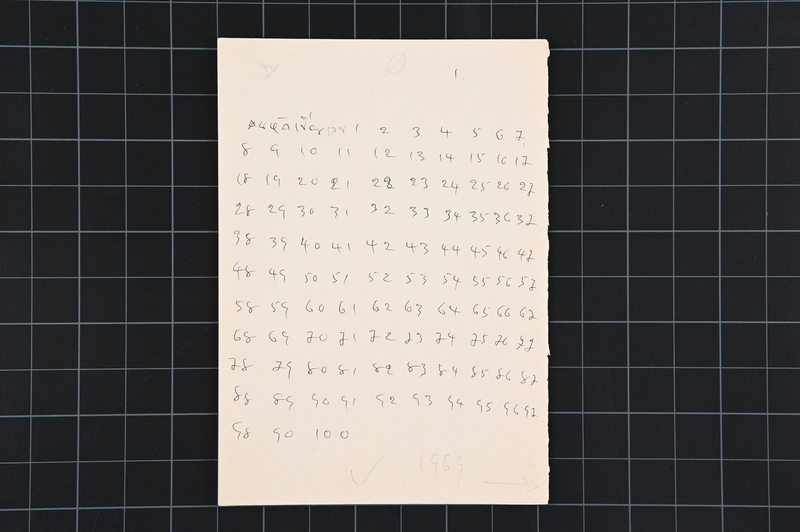 1.
1 2 3 4 5 6 7
8 9 10 11 12 13 14 15 16 17
18 19 20 21 22 23 24 25 26 27
28 29 30 31 32 33 34 35 36 37
38 39 40 41 42 43 44 45 46 47
48 49 50 51 52 53 54 55 56 57
58 59 60 61 62 63 64 65 66 67
68 69 70 71 72 73 74 75 76 77
78 79 80 81 82 83 84 85 86 87
88 89 90 91 92 93 94 95 96 97
98 90 100
1969